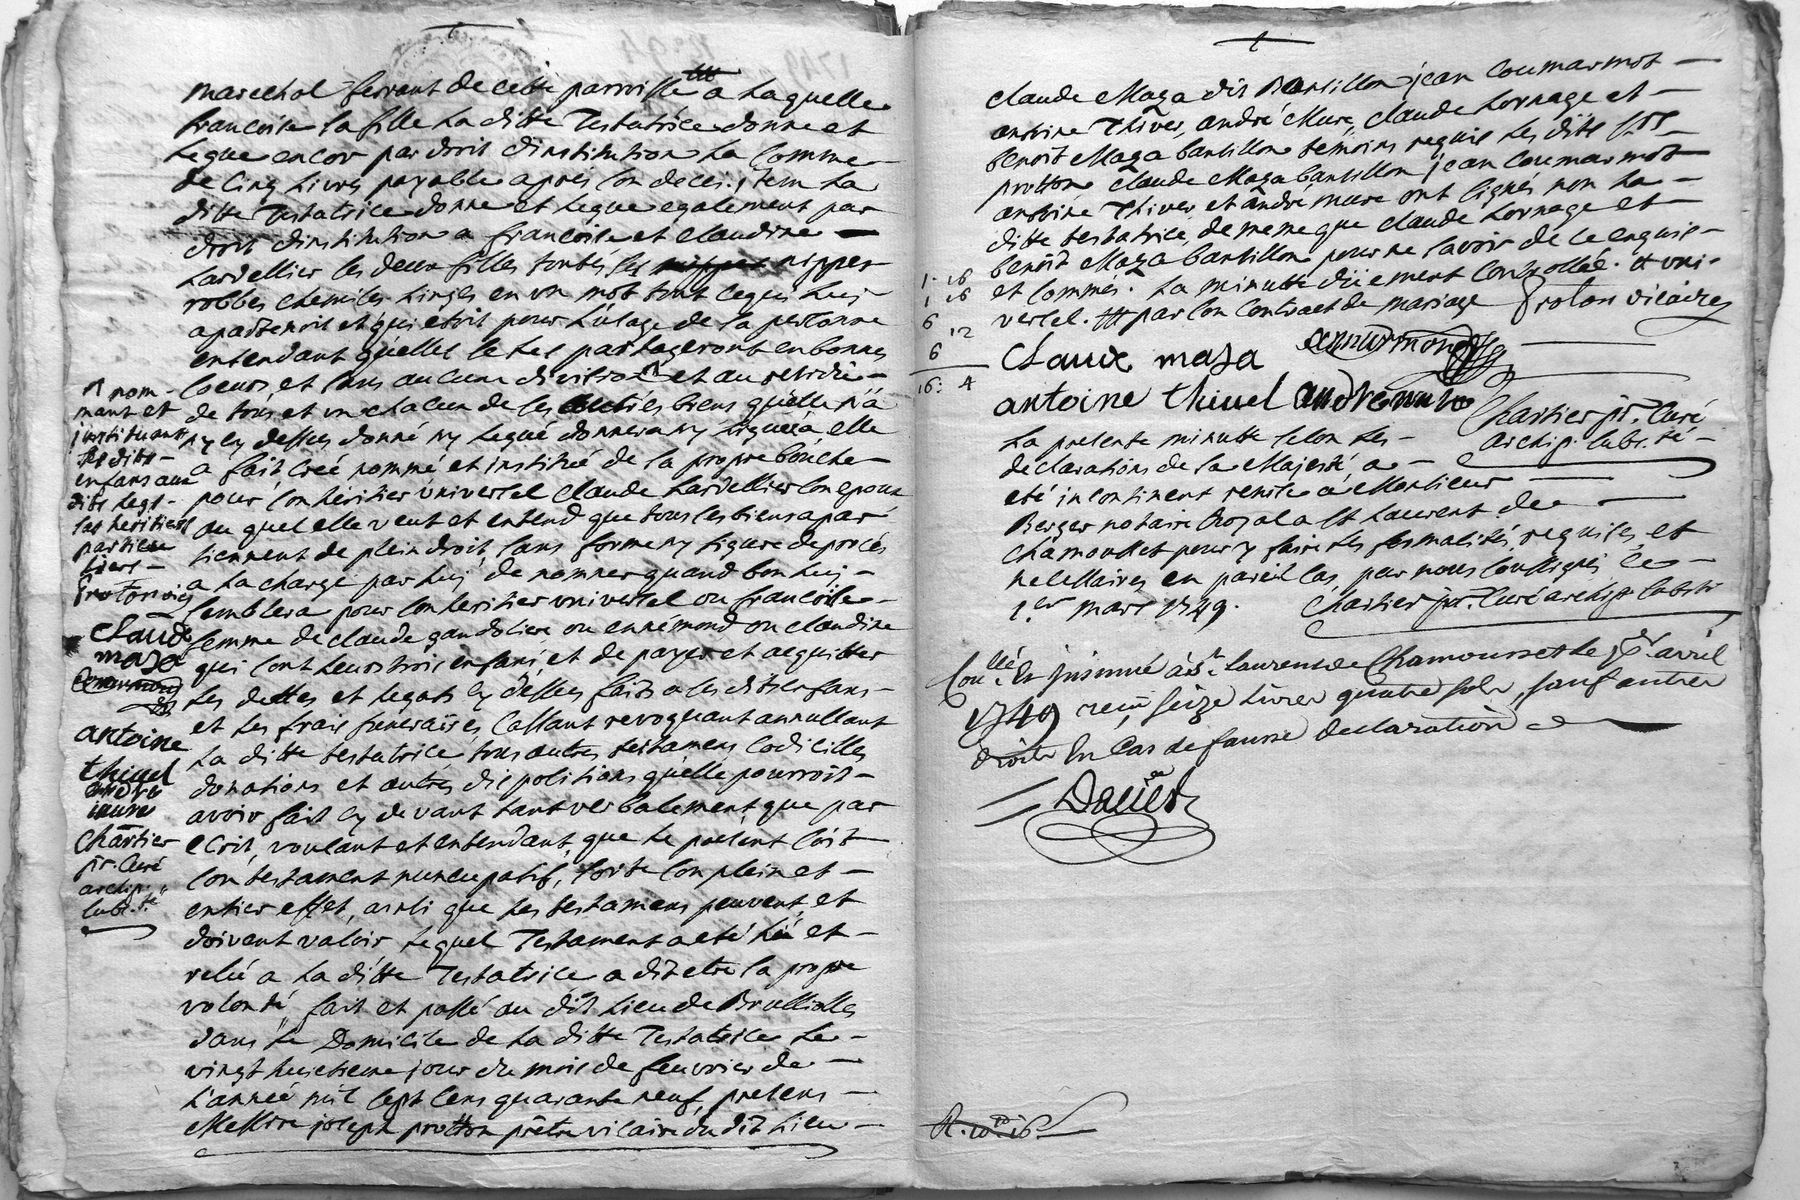 marechal ferrant de cette parroisse a laquelle
francoise sa fille la ditte Testatrice donne et
legue encor par droit d'institution la somme
de cinq livres payable apres son deces. item la
ditte Testatrice donne et legue egalement par
droit d'institution a francoise et claudine
Lardellier ses deux filles toutes ses nippes
robbes chemises linges en un mot tout ce qui luy
apartenoit et qui etoit pour l'usage de sa personne
entendant qu'elles se les partageront en bonnes
soeurs et sans aucune division et au residu
de tous et un chacun de ses autres biens qu'elle n'a
n'y cy dessus donné ny legué donnera ny leguera elle
a fait creé nommé et institué de sa propre bouche
pour son héritier universel claude Lardellier son epoux
au quel elle veut et entend que tous ses biens apar
tiennent de plein droit sans forme ny figure de procés
a la charge par luy de nommer quand bon luy
semblera pour son heritier universel ou francoise
femme de claude gandoliere ou ennemond ou claudine
qui sont leurs trois enfans et de payer et acquitter
les dettes et legats cy dessus faits a ses dits enfans
et les frais funeraires, cassant revoquant annullant
la ditte testatrice tous autres testamens codicilles
donations et autres dispositions qu'elle pourroit
avoir fait cy devant tant verbalement que par
ecrit, voulant et entendant que le present soit
son testament nuncupatif, sorte son plein et
entier effet, ainsi que les testamens peuvent et
doivent valoir, lequel Testament a eté lu et
relu a la ditte Testatrice a dit etre sa propre
volonté, fait et passé au dit lieu de Brullioles
dans le Domicile de la ditte Testatrice le
vingt huitieme jour du mois de feuvrier de
l'année mil sept cens quarante neuf, presens
Messire joseph protton prêtre vicaire du dit lieu
nom-
mant et
instituant
ses dits
enfans aux
dits legs
ses heritiers
particu
liers
Claude
maza
antoine
thivel
andré
mure
Chartier
pr. Curé
archip.
subr. té
claude Maza dit Bantillon jean Coumarmot
antoine Thivel, andré Mure, claude Lornage et
benoit Maza bantillon témoins requis les dits srs
protton claude Maza bantillon jean Coumarmot
antoine Thivel et andré mure ont signés non la
ditte testatrice, de meme que claude Lornage et
benoit Maza bantillon pour ne savoir de ce enquis
et sommés. La minutte düement controllée. uni-
versel. par son contract de mariage Protton vicaire
1. 16
1. 16
6
12
6
16: 4
Claux maza
antoine thivel andré mure
Chartier pr. Curé
archip. subr. té
La presente minutte selon les
declarations de sa Majesté, a
eté incontinent remise a Monsieur
Berger notaire Royal a St Laurent de
Chamousset pour y faire les formalités requises et
necessaires en pareil cas, par nous soussigné ce
1er mars 1749. Chartier pr. Curé archip. subr. té
Con.llé et insinué a St laurens de Chamousset le avril
1749 reçu seize livres quatre sols, sauf autres
droits En Cas de fausse declaration